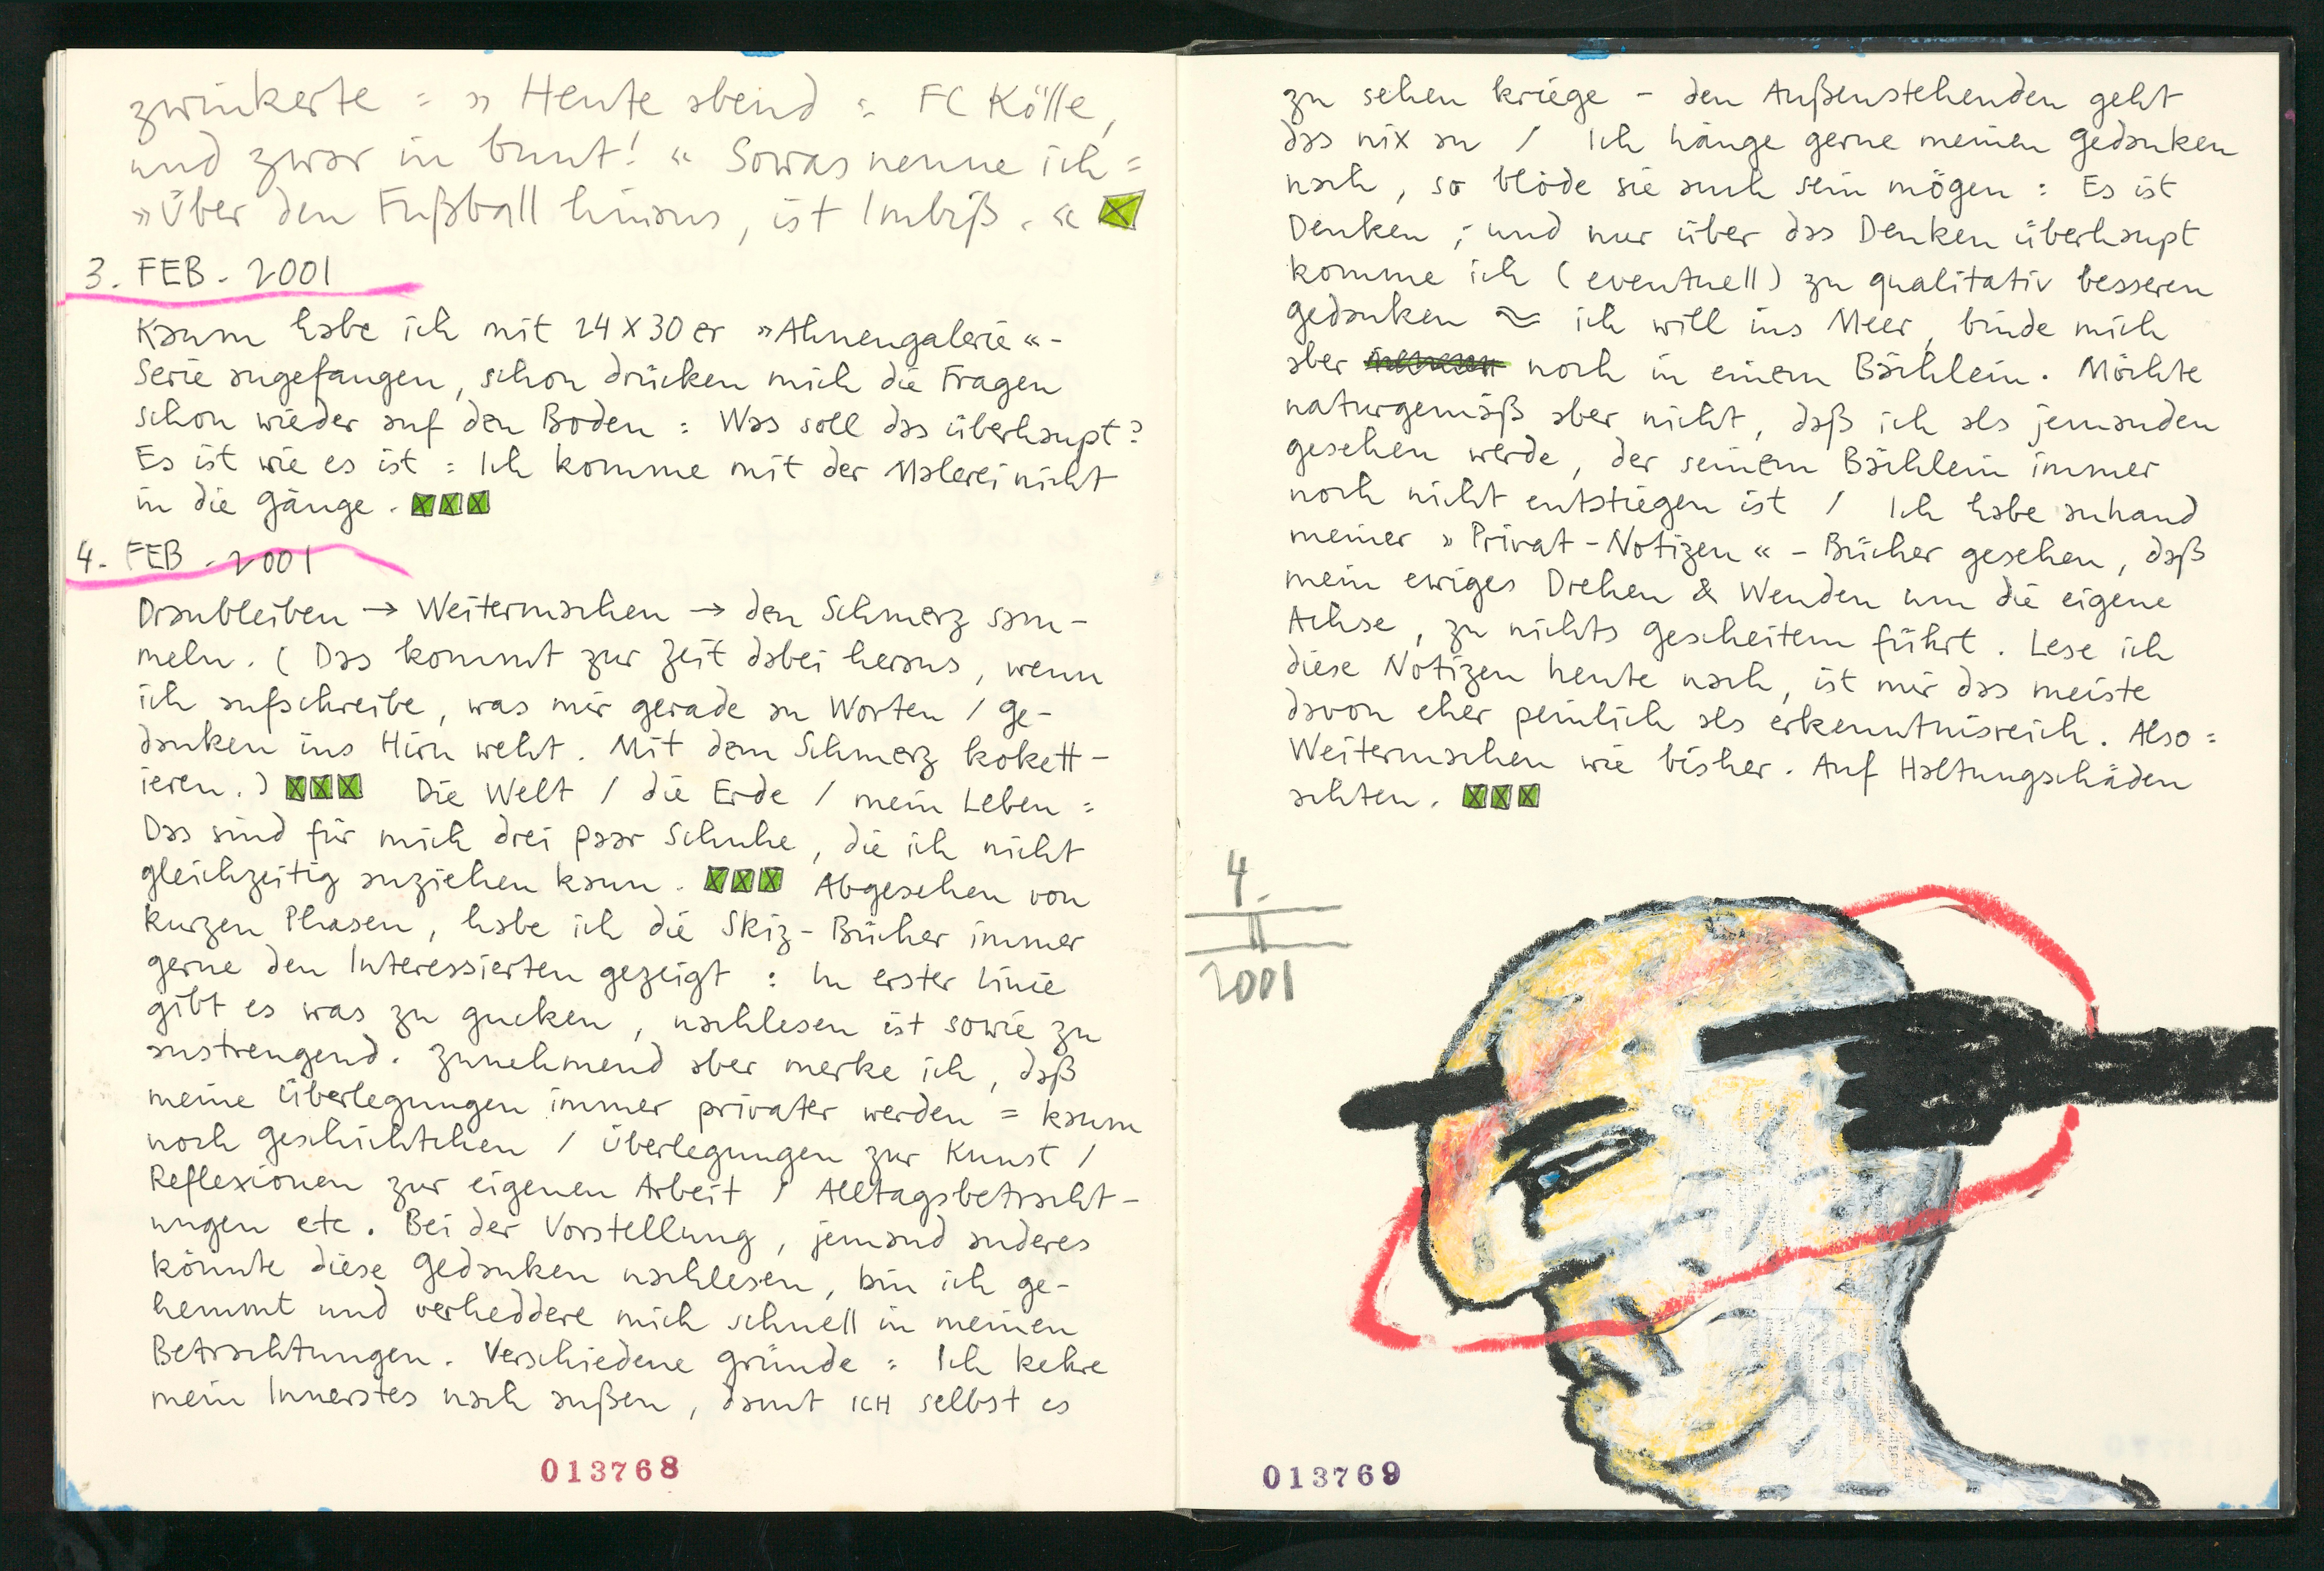 zwinkerte : » Heute abend : FC Kölle,
und zwar in bunt! « Sowas nenne ich :
»Über den Fußball hinaus, ist Imbiß. «
3. FEB. 2001
Kaum habe ich mit 24 x 30 er »Ahnengalerie«-
Serie angefangen, schon drücken mich die Fragen
schon wieder auf den Boden : Was soll das überhaupt?
Es ist wie es ist : Ich komme mit der Malerei nicht
in die Gänge.
4. FEB. 2001
Dranbleiben → Weitermachen → den Schmerz sam-
meln. ( Das kommt zur Zeit dabei heraus, wenn
ich aufschreibe, was mir gerade an Worten / Ge-
danken ins Hirn weht. Mit dem Schmerz kokett-
ieren. ) Die Welt / die Erde / mein Leben :
Das sind für mich drei paar Schuhe, die ich nicht
gleichzeitig anziehen kann. Abgesehen von
kurzen Phasen, habe ich die Skiz-Bücher immer
gerne den Interessierten gezeigt : In erster Linie
gibt es was zu gucken, nachlesen ist sowie zu
anstrengend. Zunehmend aber merke ich, daß
meine Überlegungen immer privater werden = kaum
noch Geschichtchen / Überlegungen zur Kunst /
Reflexionen zur eigenen Arbeit / Alltagsbetracht-
ungen etc. Bei der Vorstellung, jemand anderes
könnte diese Gedanken nachlesen, bin ich ge-
hemmt und verheddere mich schnell in meinen
Betrachtungen. Verschiedene Gründe : Ich kehre
mein Innerstes nach außen, damit ICH selbst es
013768
zu sehen kriege - den Außenstehenden geht
das nix an / Ich hänge gerne meinen Gedanken
nach, so blöde sie auch sein mögen : Es ist
Denken ; und nur über das Denken überhaupt
komme ich ( eventuell ) zu qualitativ besseren
Gedanken ≈ ich will ins Meer, binde mich
aber noch in einem Bächlein. Möchte
naturgemäß aber nicht, daß ich als jemanden
gesehen werde, der seinem Bächlein immer
noch nicht entstiegen ist / Ich habe anhand
meiner » Privat-Notizen «-Bücher gesehen, daß
mein ewiges Drehen & Wenden um die eigene
Achse, zu nichts gescheitem führt. Lese ich
diese Notizen heute nach, ist mir das meiste
davon eher peinlich als erkenntnisreich. Also :
Weitermachen wie bisher. Auf Haltungschäden
achten.
4.
II
2001
013769